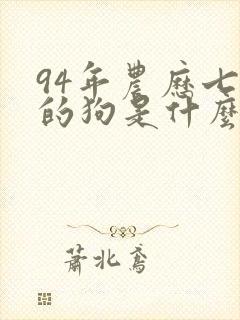 94年農歷七
的狗是什麼
蕭北鳶